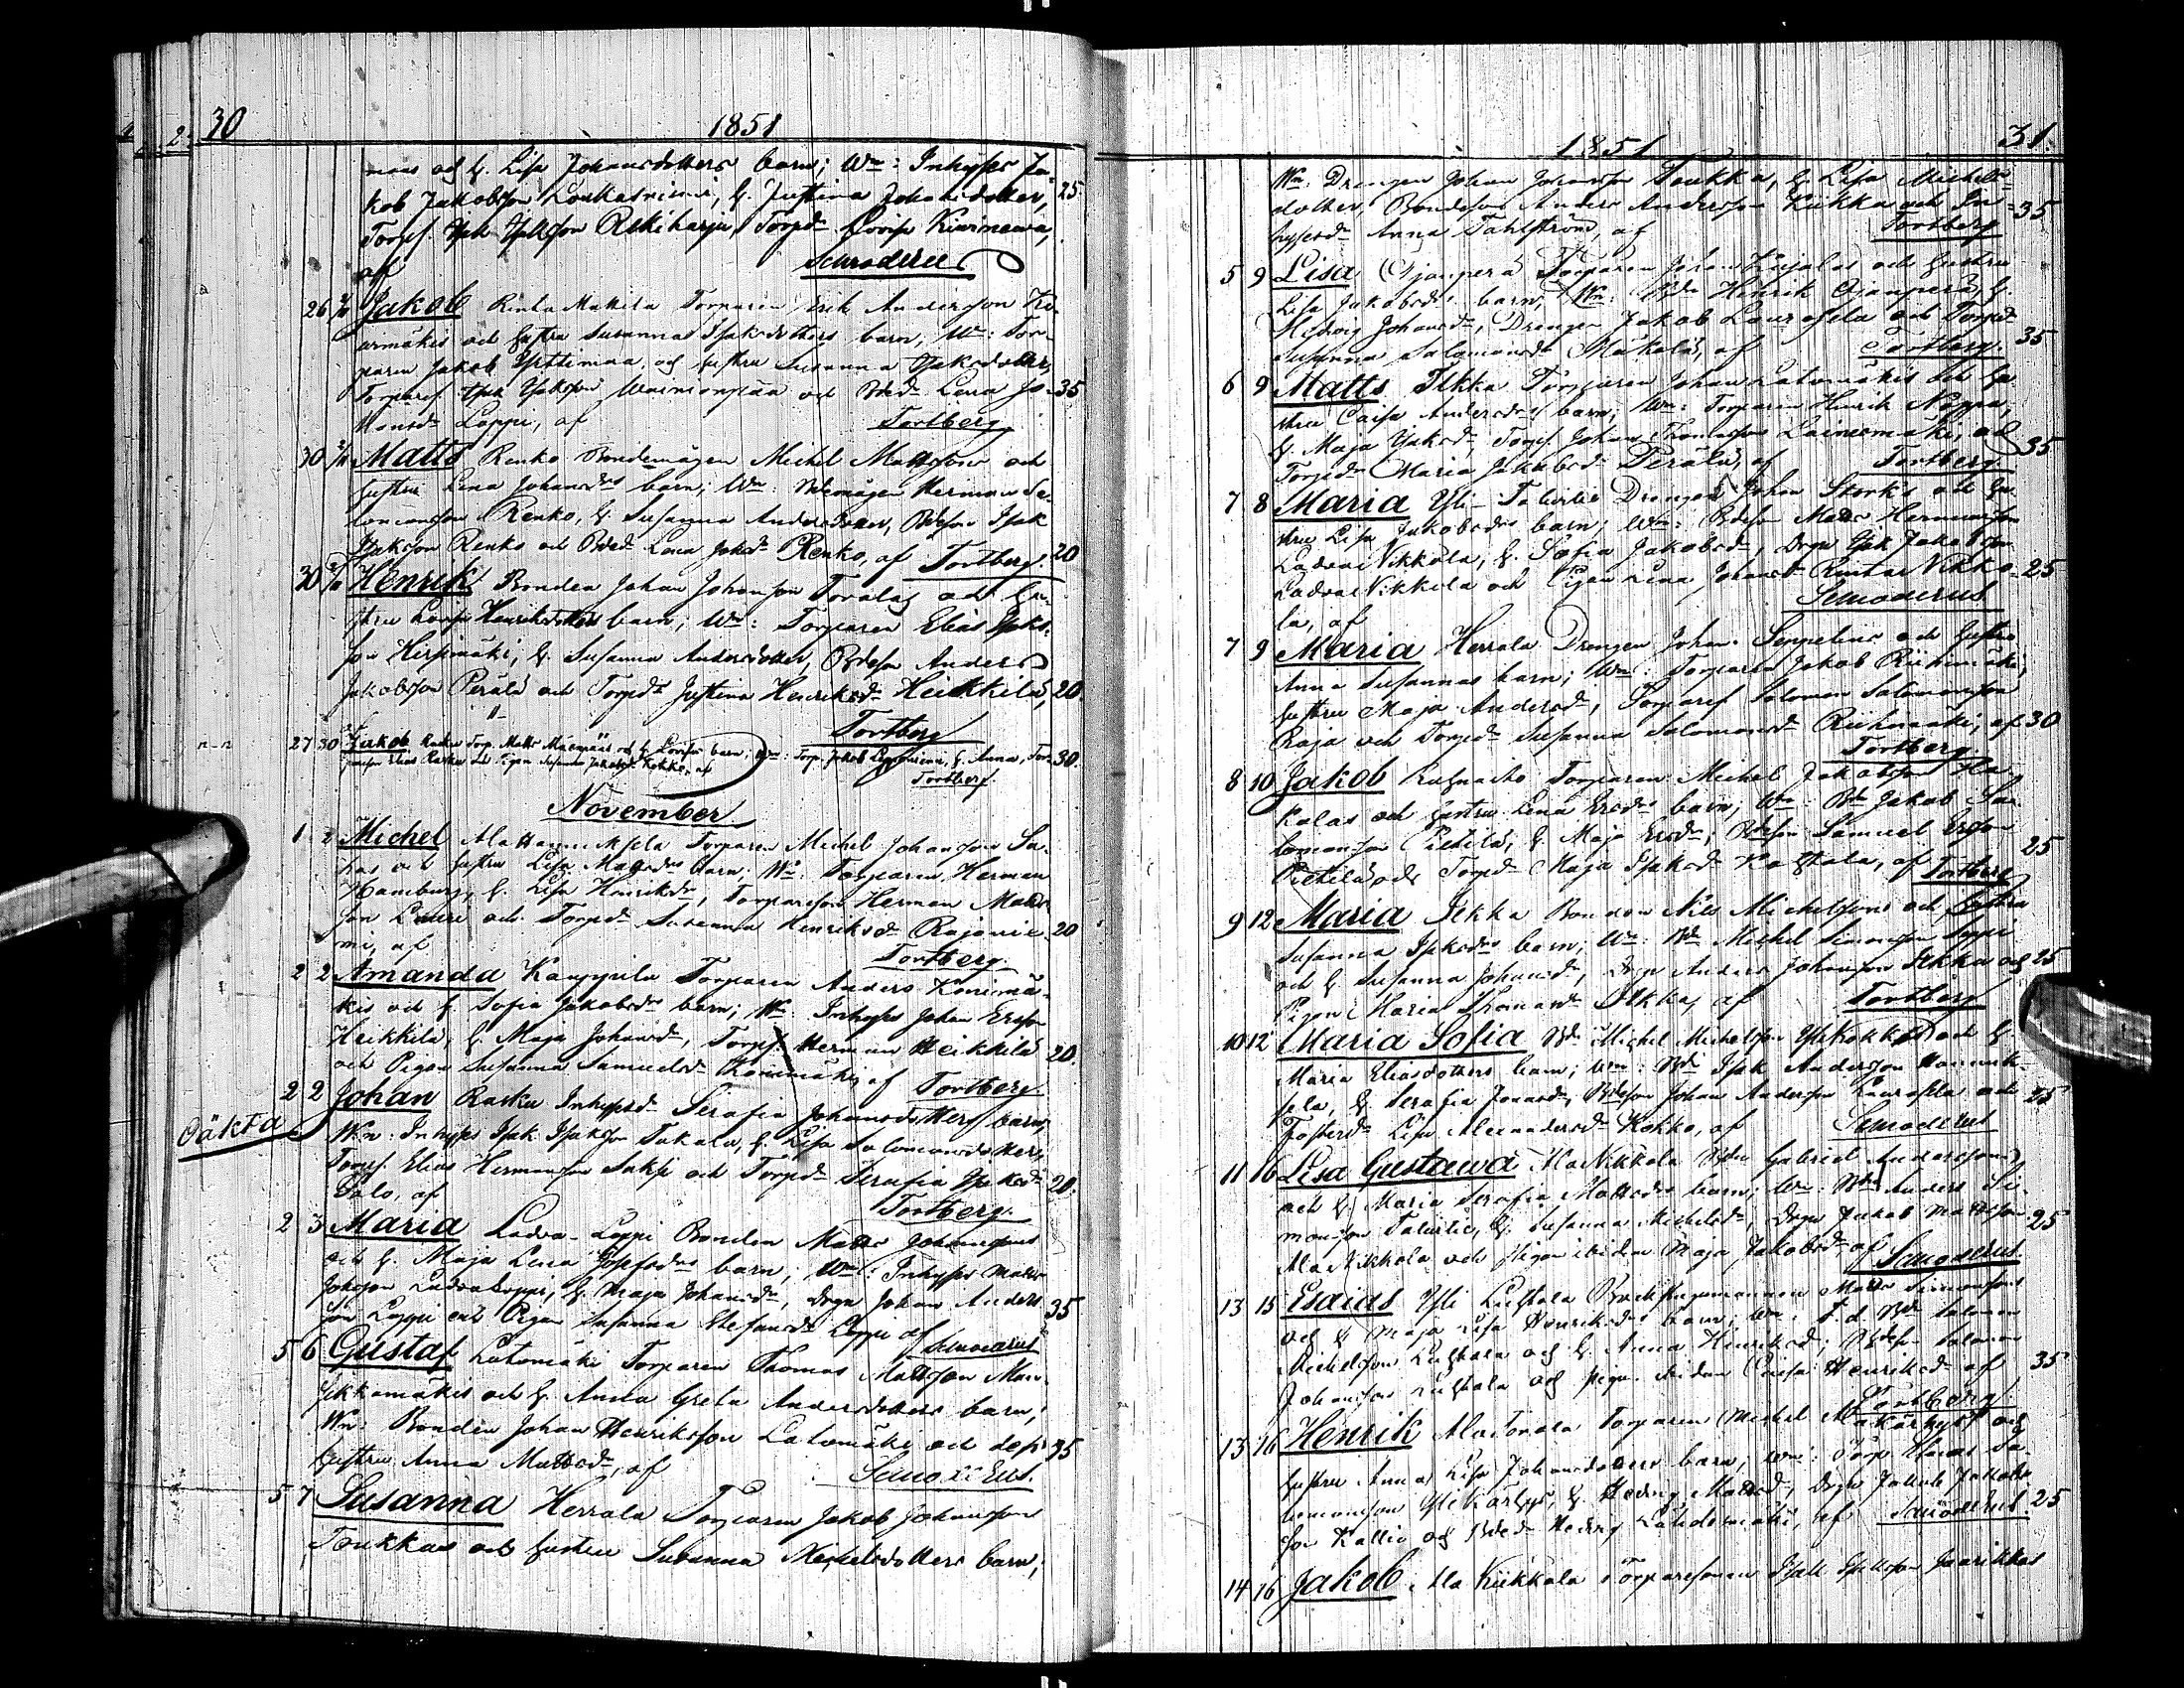 30 1851
mans och h. Lisa Johansdotters barn; Wn: Inhyses Ja-
kob Jakobsson h. Justina Johansdotter, 25
Torps. Isak Isaksson Rekiharju Torpd Lovisa Kiviniemi,
af Schroderus
26 Jakob Rinta Makila Torparen Erik Andersson
och hustru Susanna Isaksdotters barn, Wn: Tor-
paren Jakob och hustru Susanna Isaksdotter,
Torpares. Isak Isaksson och Bded Lena Jo- 35
hansd Loppi, af Tortberg
30 Matts Renko Bondemågen Michel Mattssons och
hustru Lena Johansds barn; Wn: Bdemågen Herman Sa-
lomonsson Renko, h. Susanna Andersdotter, Bdeson Isak
Isaksson Renko och Bded Lena Johd Renko, af Tortberg. 20
30 Henrik Bonden Johan Johansson Torala och hu-
stru Lovisa Henriksdotters barn; Wn: Torparen Elias Isaks-
son Hirsimäki, h. Susanna Andersdotter, Bdeson Anders
Jakobsson Perälä och Torpd Justina Henriksd Heikkilä, 20.
Tortberg
27 30 Jakob Rasku Torp. Matts Mäenpääs och h. Lovisas barn; Wn: Torp. Jakob h. Anna, Tor- 30.
paresson Elias Rasku och Pigan Susanna Jakobsd Kokko, af
Tortberg.
November
1 2 Michel Alattannuksela Torparen Michel Johansson Sa-
has och hustru Lisa Mattsds barn; Wn: Torparen Herman
Hamburg, h. Lisa Henriksdr, Torparesson Herman Matts-
son Lauri och Torpd Susanna Henriksd Rajanie- 20
mi, af Tortberg.
2 2 Amanda Kauppila Torparen Anders Könimä-
kis och h. Sofia Jakobsds barn; Wn: Inhyses Johan Ersson
Heikkilä, h. Maja Johansd, Torps. Herman Heikkilä 20.
och Pigan Susanna Samuelsd Könimäki, af Tortberg
Oäkta
2 2 Johan Rasku Inhysesd Serafia Johansdotters barn,
Wn: Inhyses Isak Isaksson Takala, h. Lisa Salomonsdotter,
Torps. Elias Hermansson Saksi och Torpd Serafia Isaksd 20.
Salo, af Tortberg.
2 3 Maria Ladva-Loppi Bonden Matts Johanssons
och h. Maja Lena Josefsds barn; Wn: Inhyses Matts
Johansson LadvaLoppi, h. Maja Johansdr, Drgn Johan Anders- 35
son Loppi och Pigan Susanna Stefansd Loppi af Schroderus
5 6 Gustaf Latomäki Torparen Thomas Mattsson
och h. Anna Greta Andersdotters barn;
Wn: Bonden Johan Henriksson Latomäki och dess 35
hustru Anna Mattsd, af Schroderus.
5 7 Susanna Herrala Torparen Jakob Johanssons
Toukkas och hustru Susanna Michelsdotters barn;
1851 31.
Wn: Drengen Johan Johansson Toukka, h. Lisa Michels-
dotter, Bondeson Anders Andersson Kiikka och In- 35
hysesd Anna Tahlström, af Tortberg
5 9 Lisa Ojanperä Torparen Johan Kujalas och hustru
Lisa Jakobsds barn; Wn: Bdn Henrik Ojanperä, h.
Hedvig Johansd, Drengen Jakob Laurosela och Torpd
Susanna Salomonsd Mäkelä, af Tortberg. 35
6 9 Matts Ilkka Torparen Johan Latomäkis och hu-
stru Caisa Andersds barn; Wn: Torparen Henrik
h. Maja Isaksd, Torps. Johan Thomasson och 35
Torpd Maria Jakobsd Perälä, af Tortberg.
7 8 Maria Yli-Talvitie Drengen Johan Storks och hu-
stru Lisa Jakobsds barn; Wn: Bdeson Matts Hermansson
Ladva Nikkola, h. Sofia Jakobsd, Drgn Isak Jakobsson
Ladva Nikkola och Pigan Lena Johansd Rintar Nikko- 25
la, af Schroderus
7 9 Maria Herrala Drengen Johan Seppelins och hustru
Anna Susannas barn; Wn: Torparen Jakob Riihimäki,
hustru Maja Andersd, Torpares Salomon Salomonsson
Raja och Torpd Susanna Salomonsd Riihimäki, af 30
Tortberg.
8 10 Jakob Torparen Michel Jakobsson Ha-
kalas och hustru Lena Ersds barn; Wn: Bdn Jakob Sa-
lomonsson Pietilä, h. Maja Ersdr, Bdeson Samuel Ersson 25
Pietilä och Torpd Maja Isaksd af Tortberg
9 12 Maria Ilkka Bonden Nils Michelssons och hustru
Susanna Isaksds barn; Wn: Bdn Michel Simonsson Loppi
och h. Susanna Johansd, Drgn Anders Johansson Ilkka och 25
Pigan Maria Thomasd Ilkka, af Tortberg
10 12 Maria Sofia Bdn Michel Michelsson YliKokko och h.
Maria Eliasdotters barn; Wn: Bdn Isak Andersson Hannuk-
sela, h. Serafia Jonasd, Bdeson Johan Andersson Laurosela och 25
Fosterd Lisa Alexandersd Kokko, af Schroderus
11 16 Lisa Gustawa AlaNikkola Bdn Gabriel Anderssons
och h. Maria Serafia Mattsds barn; Wn: Bdn Anders Si-
monsson Talvitie, h. Susanna Michelsd, Drgn Jakob Mattsson 25
AlaNikkola och Pigan ibidem Maja Jakobsd af Schroderus
13 15 Esaias Yli Luhtala Matts Simonssons
och h. Maja Lisa Henriksds barn; Wn: f.d. Bdn Salomon
Michelsson Luhtala och h. Anna Henriksd; Bdeson Salomon
Johansson Luhtala och pigan ibidem Caisa Henriksd af 35
Tortberg
13 16 Henrik AlaTorala Torparen Michel AlaKärhys och
hustru Anna Lisa Johansdotters barn; Wn: Torp. Sa-
lomonsson YliKärhys, h. Hedvig Mattsd, Drgn Jakob Jakobs-
son Kallio och Bded Hedvig Lähdesmäki, af Schroderus. 25
14 16 Jakob Ala Kiikkala Torparesonen Isak Isaksson Jaarikkas